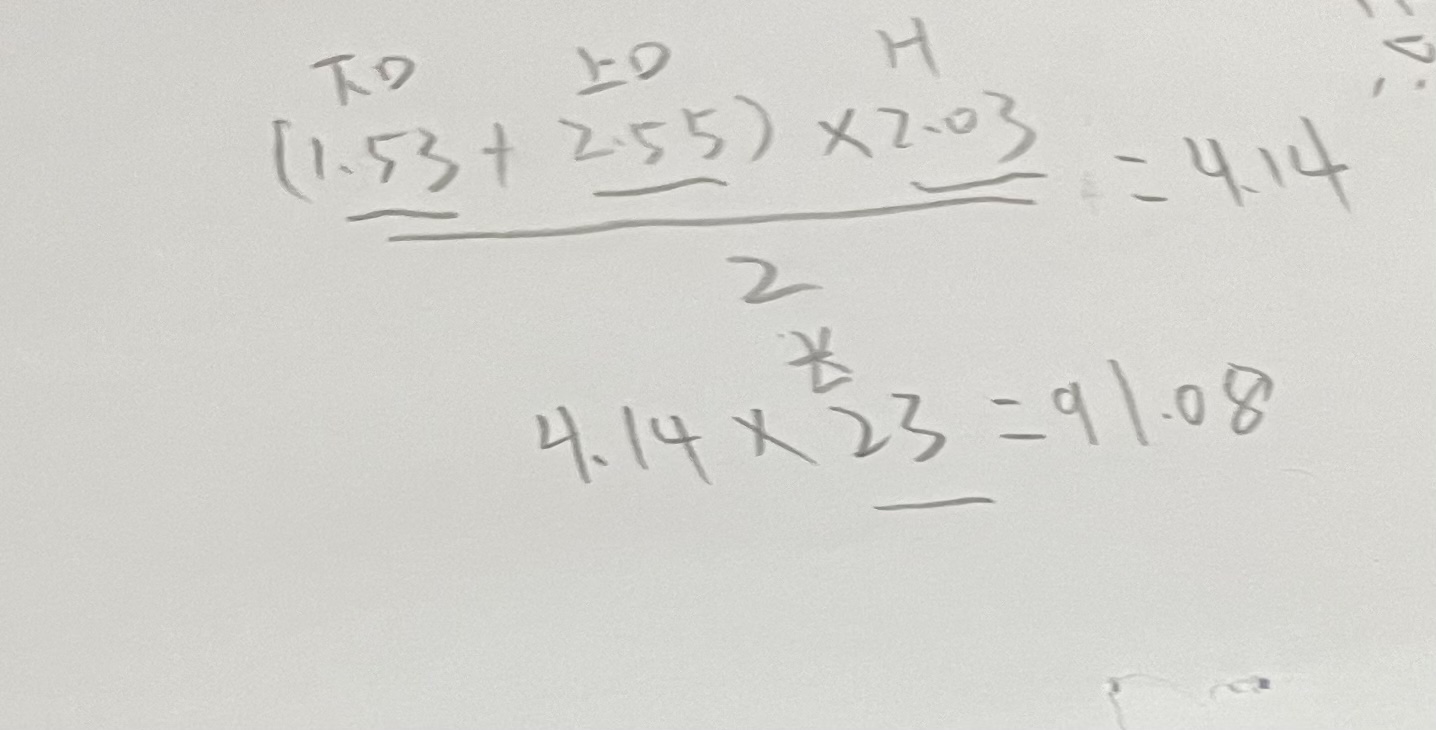 下口 上口 H
(1.53 + 2.55) × 2.03 = 4.14
2
长
4.14 × 23 = 91.08